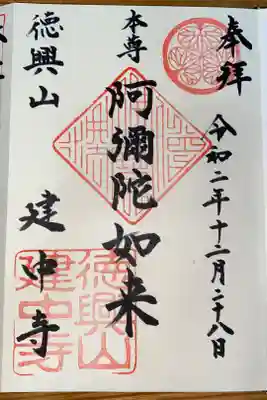 奉拝
令和二年十二月二十八日
本尊
阿彌陀如来
徳興山
建中寺
徳興山
建中寺